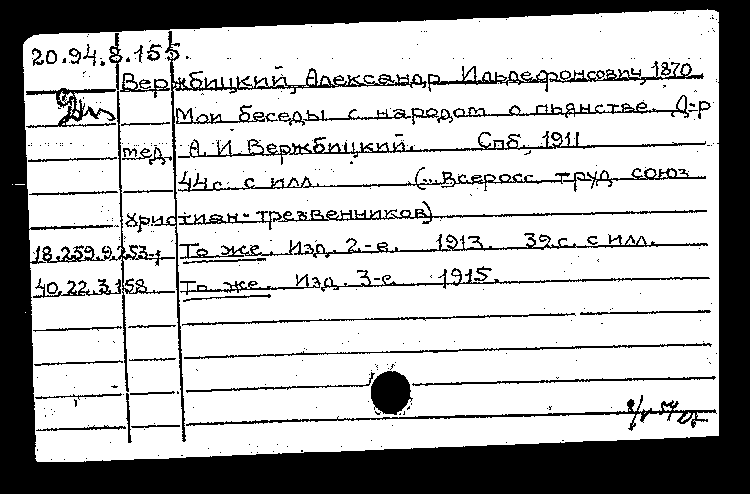 20.94.8.155.
Вержбицкий, Александр Ильдефонсович, 1870
Мои беседы с народом о пьянстве. Д-р
мед. А. И. Вержбицкий. Спб., 1911
44 с. с илл. (...Всеросс. труд. союз
христиан-трезвенников)
18.259.9.253-; То же. Изд. 2-е. 1913. 39 с. с илл.
40.22.3.158 То же. Изд. 3-е 1915.